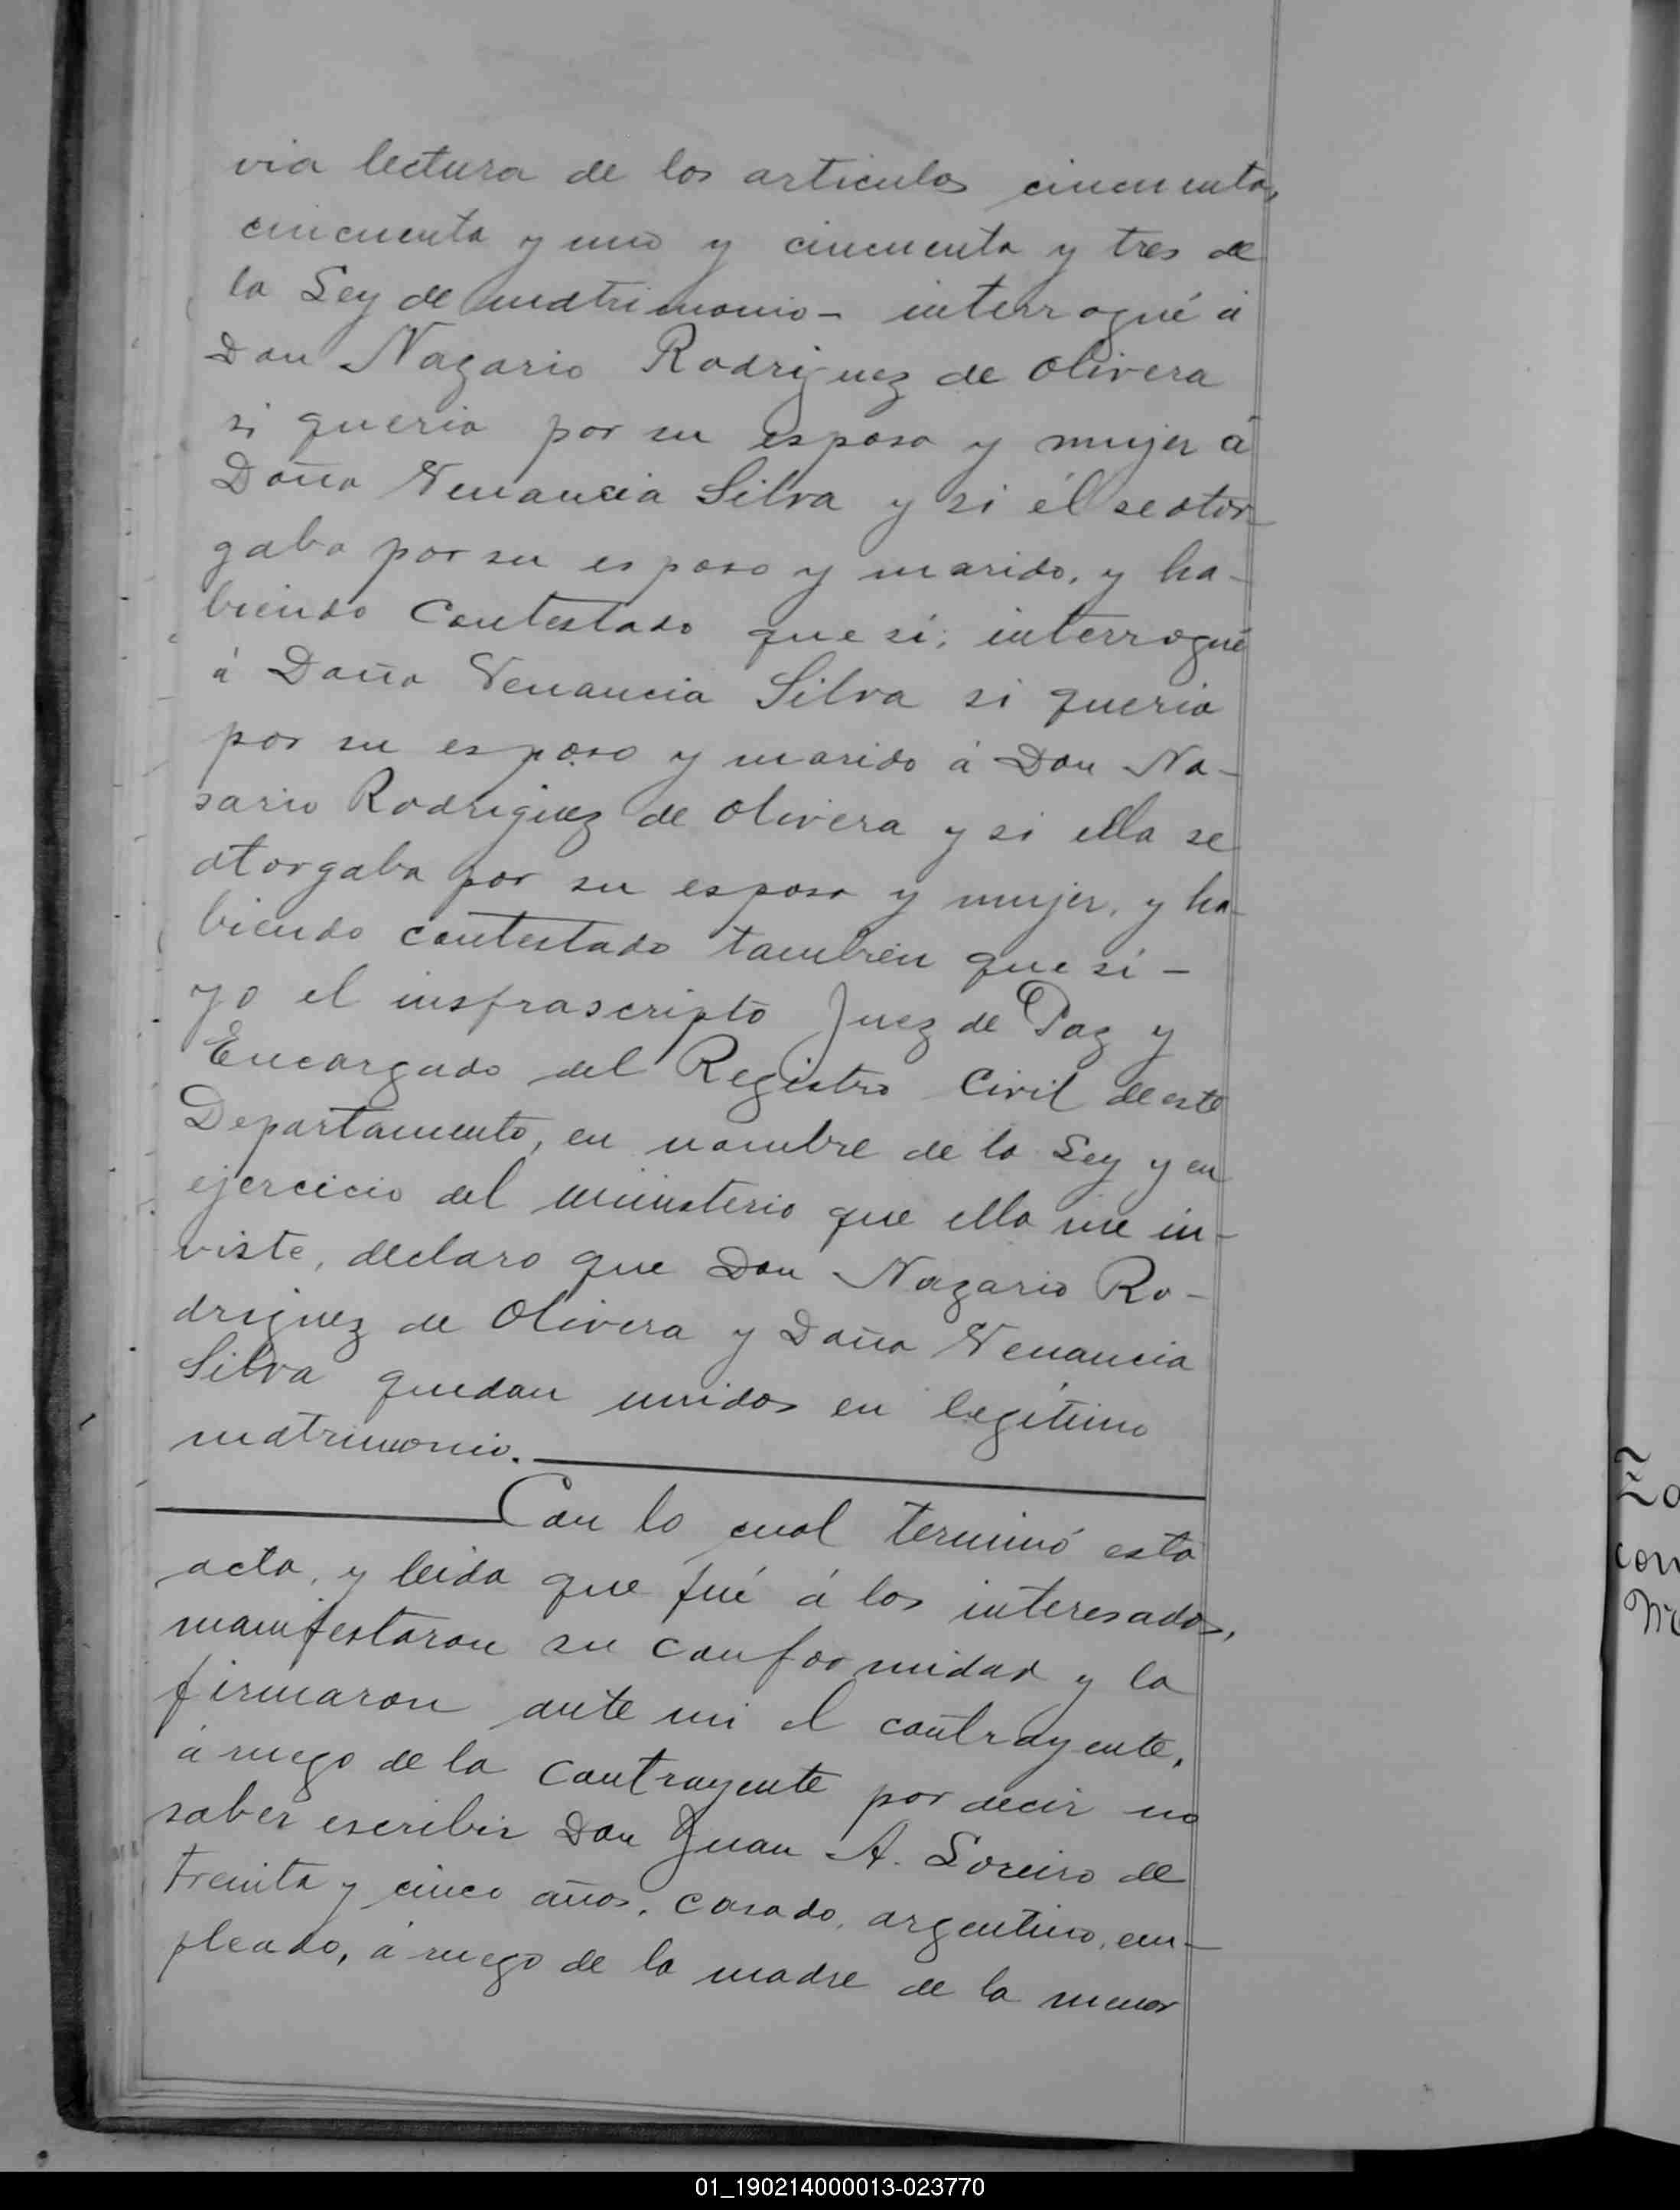 via lectura de los articulos cincuenta,
cincuenta y uno y cincuenta y tres de
la Ley de matrimonio - interrogué á
Don Nazario Rodriguez de Olivera
si queria por su esposa y mujer á
Doña Venancia Silva y si él se otor-
gaba por su esposo y marido, y ha-
biendo contestado que sí; interrogué
á Doña Venancia Silva si queria
por su esposo y marido á Don Na-
sario Rodriguez de Olivera y si ella se
otorgaba por su esposa y mujer, y ha-
biendo contestado tambien que sí -
yo el insfrascripto Juez de Paz y
Encargado del Registro Civil de este
Departamento, en nombre de la Ley y en
ejercicio del ministerio que ella me in-
viste, declaro que Don Nazario Ro-
driguez de Olivera y Doña Venancia
Silva quedan unidos en legítimo
matrimonio.
Con lo cual terminó esta
acta, y leida que fué á los interesados,
manifestaron su conformidad y la
firmaron ante mi el contrayente,
á ruego de la contrayente por decir no
saber escribir Don Juan A. Loreiro de
treinta y cinco años, casado, argentino, em-
pleado, á ruego de la madre de la menor
con
01_190214000013-023770